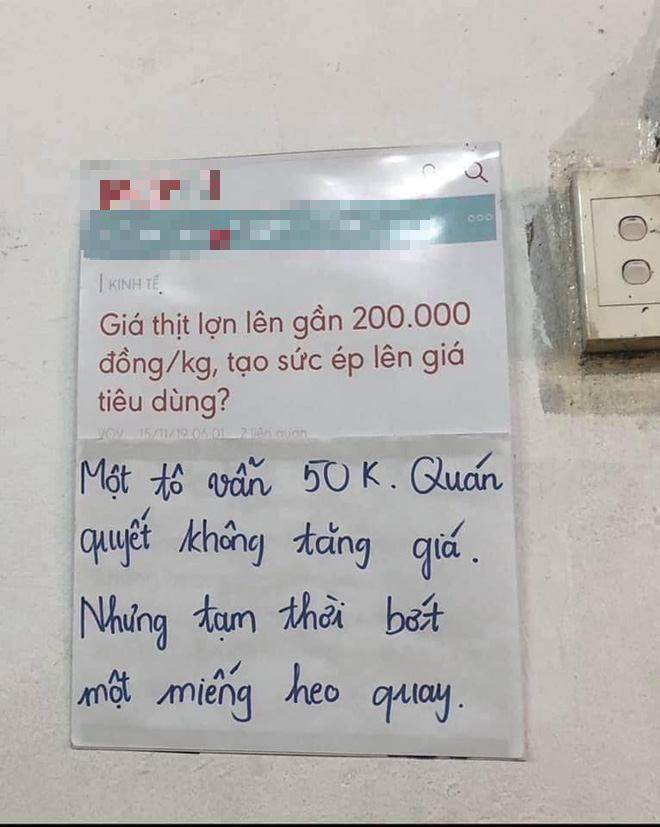 KINH TẾ
Giá thịt lợn lên gần 200.000
đồng/kg, tạo sức ép lên giá
tiêu dùng?
VOV 15/11/19 06:01 2 liên quan
Một tô vẫn 50K. Quán
quyết không tăng giá.
Nhưng tạm thời bớt
một miếng heo quay.